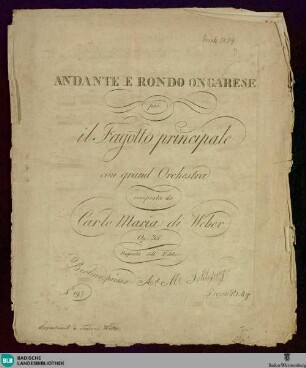 ANDANTE E RONDO ONGARESE
per
il Fagotto principale
con grand Orchestra
composto da
Carlo Maria di Weber
Op. 35
Proprietà dell' Editore
Berlino presso Ad. Mt. Schlesinger
BLB BADISCHE
LANDESBIBLIOTHEK
Baden-Württemberg